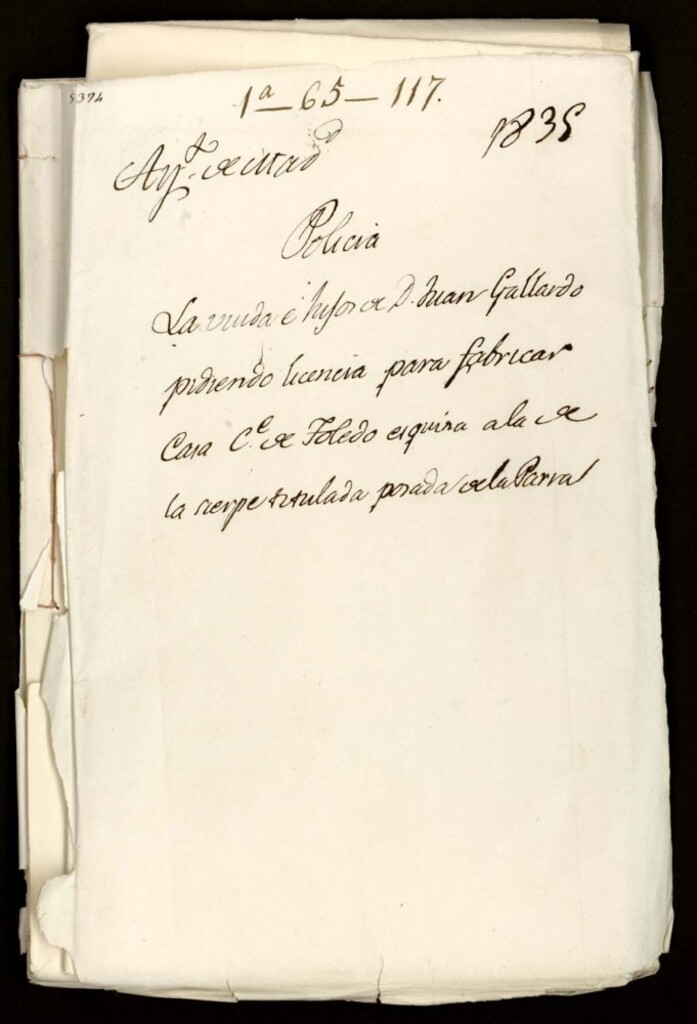 5374
1ª—65—117.
1835
Ayt.º de Madd
Policia
La viuda é hijos de D. Juan Gallardo
pidiendo licencia para fabricar
Casa C.e de Toledo esquina a la de
la sierpe titulada posada de la Parra